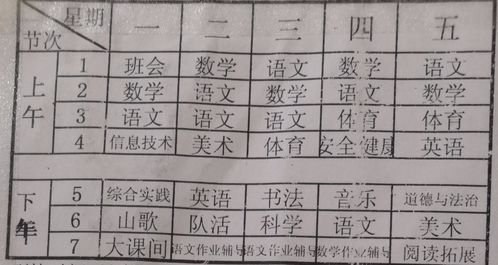 星期 一 二 三 四 五
节次
上午
1 班会 数学 语文 数学 语文
2 数学 语文 数学 语文 数学
3 语文 语文 语文 体育 体育
4 信息技术 美术 体育 安全健康 英语
下午
5 综合实践 英语 书法 音乐 道德与法治
6 山歌 队活 科学 语文 美术
7 大课间 语文作业辅导 语文作业辅导 数学作业辅导 阅读拓展